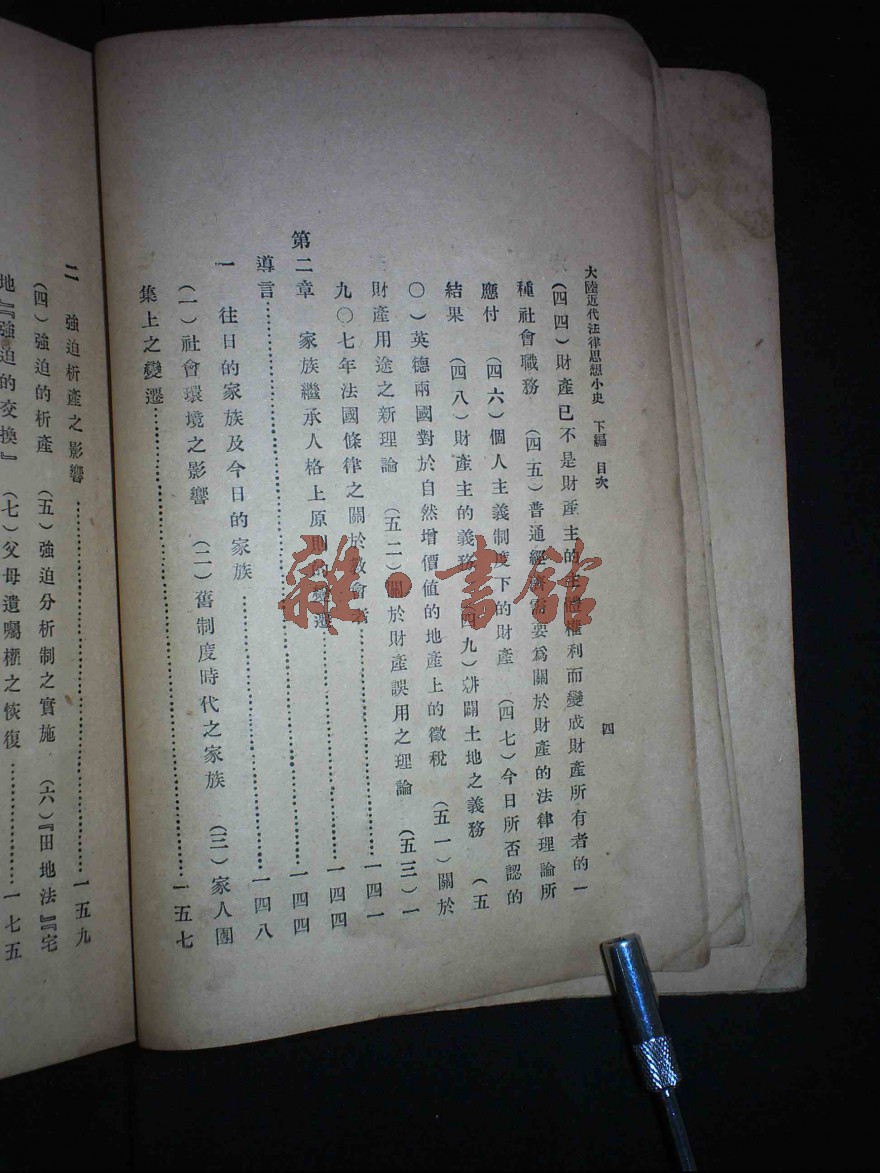 大陸近代法律思想小史 下編 目次
四
(四四)財產已不是財產主的主體權利而變成財產所有者的一
種社會職務 (四五)普通經濟需要爲關於財產的法律理論所
應付 (四六)個人主義制度下的財產 (四七)今日所否認的
結果 (四八)財產主的義務 (四九)闢土地之義務 (五
〇)英德兩國對於自然增價值的地產上的徵稅 (五一)關於
財產用途之新理論 (五二)關於財產誤用之理論 (五三)一
九〇七年法國條律之關於教會者……一四一
第二章 家族繼承人格上原則的變遷……一四四
導言……一四四
一 往日的家族及今日的家族……一四八
(一)社會環境之影響 (二)舊制度時代之家族 (三)家人團
集上之變遷……一五七
二 強迫析產之影響……一五九
(四)強迫的析產 (五)強迫分析制之實施 (六)『田地法』『宅
地』『強迫的交換』 (七)父母遺囑權之恢復……一七五
雜·書館